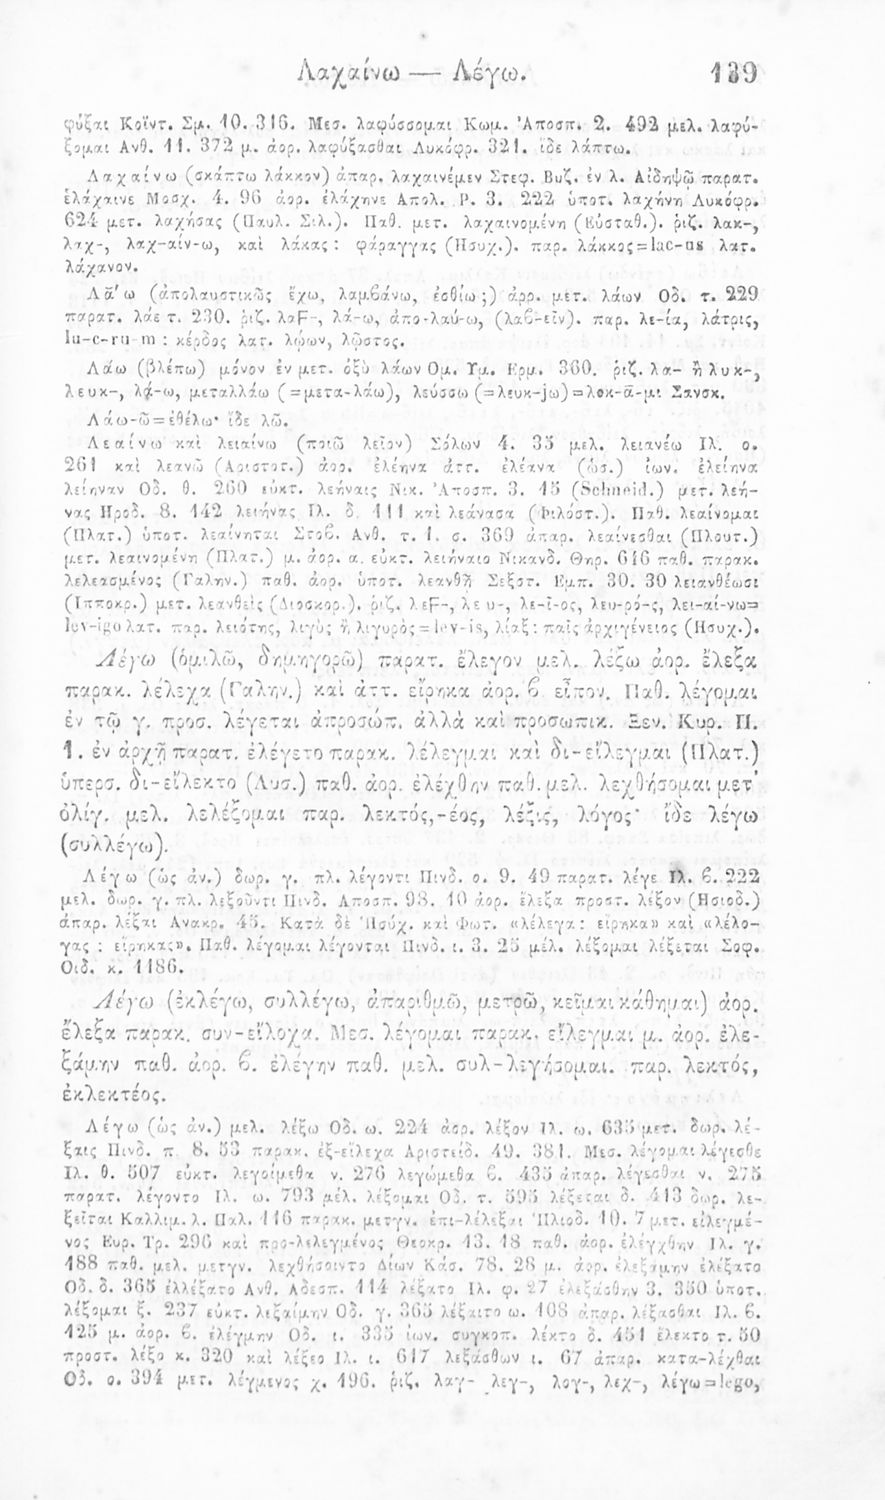 Λαχαίνω — Λέγω. 139
φύξαι Κοΐντ. Σμ. 10. 316. Μεσ. λαφύσσομαι Κωμ. Ἀποσπ. 2. 492 μελ. λαφύ-
ξομαι Ανθ. 11. 372 μ. ἀορ. λαφύξασθαι Λυκόφρ. 321. ἰδε λάπτω.
Λαχαίνω (σκάπτω λάκκον) ἀπαρ. λαχαινέμεν Στεφ. Βυζ. ἐν λ. Αἰδηψῷ παρατ.
ἐλάχαινε Μοσχ. 4. 96 ἀορ. ἐλάχηνε Απολ. Ρ. 3. 222 ὑποτ. λαχήνῃ Λυκόφρ.
624 μετ. λαχήσας (Παυλ. Σιλ.). Παθ. μετ. λαχαινομένη (Εὐσταθ.). ῥιζ. λακ-,
λαχ-, λαχ-αίν-ω, καὶ λάκας : φάραγγας (Ησυχ.). παρ. λάκκος = lac-us λατ.
λάχανον.
Λᾱ́ω (ἀπολαυστικῶς ἔχω, λαμβάνω, ἐσθίω ;) ἀρρ. μετ. λάων Οδ. τ. 229
παρατ. λάε τ. 230. ῥιζ. λαϜ-, λά-ω, ἀπο-λαύ-ω, (λαβ-εῖν). παρ. λε-ία, λάτρις,
lu-c-ru-m : κέρδος λατ. λώων, λῷστος.
Λάω (βλέπω) μόνον ἐν μετ. ὀξὺ λάων Ομ. Υμ. Ερμ. 360. ῥιζ. λα- ἢ λυκ-,
λευκ-, λά-ω, μεταλλάω (=μετα-λάω), λεύσσω (=λευκ-jω)=λοκ-ᾱ-μι Σανσκ.
Λάω-ῶ = ἐθέλω· ἴδε λῶ.
Λεαίνω καὶ λειαίνω (ποιῶ λεῖον) Σόλων 4. 35 μελ. λειανέω Ιλ. ο.
261 καὶ λεανῶ (Αριστοτ.) ἀορ. ἐλέηνα ἀττ. ἐλέανα (ὡσ.) ἰων. ἐλείηνα
λείηναν Οδ. θ. 260 εὐκτ. λεήναις Νικ. Ἀποσπ. 3. 15 (Schneid.) μετ. λεή-
νας Ηροδ. 8. 142 λειήνας Ιλ. δ. 111 καὶ λεάνασα (Φιλόστ.). Παθ. λεαίνομαι
(Πλατ.) ὑποτ. λεαίνηται Στοβ. Ανθ. τ. 1. σ. 369 ἀπαρ. λεαίνεσθαι (Πλουτ.)
μετ. λεαινομένη (Πλατ.) μ. ἀορ. α. εὐκτ. λειήναιο Νικανδ. Θηρ. 646 παθ. παρακ.
λελεασμένος (Γαλην.) παθ. ἀορ. ὑποτ. λεανθῇ Σεξστ. Εμπ. 30. 30 λειανθέωσι
(Ιπποκρ.) μετ. λεανθεὶς (Διοσκορ.). ῥιζ. λεϜ-, λευ-, λε-ῖ-ος, λευ-ρό-ς, λει-αί-νω=
lev-igo λατ. παρ. λειότης, λιγὺς ἢ λιγυρὸς = lev-is, λίαξ : παῖς ἀρχιγένειος (Ησυχ.).
Λέγω (ὁμιλῶ, δημηγορῶ) παρατ. ἔλεγον μελ. λέξω ἀορ. ἔλεξα
παρακ. λέλεχα (Γαλην.) καὶ ἀττ. εἴρηκα ἀορ. β εἶπον. Παθ. λέγομαι
ἐν τῷ γ. προσ. λέγεται ἀπροσώπ. ἀλλὰ καὶ προσωπικ. Ξεν. Κυρ. Π.
1. ἐν ἀρχῇ παρατ. ἐλέγετο παρακ. λέλεγμαι καὶ δι-είλεγμαι (Πλατ.)
ὑπερσ. δι-είλεκτο (Λυσ.) παθ. ἀορ. ἐλέχθην παθ. μελ. λεχθήσομαι μετ'
ὀλίγ. μελ. λελέξομαι παρ. λεκτός,-έος, λέξις, λόγος· ἴδε λέγω
(συλλέγω).
Λέγω (ὡς ἀν.) δωρ. γ. πλ. λέγοντι Πινδ. ο. 9. 49 παρατ. λέγε Ιλ. β. 222
μελ. δωρ. γ. πλ. λεξοῦντι Πινδ. Αποσπ. 98. 10 ἀορ. ἔλεξα προστ. λέξον (Ησιοδ.)
ἀπαρ. λέξαι Ανακρ. 45. Κατὰ δὲ Ἡσύχ. καὶ Φωτ. «λέλεγα : εἴρηκα» καὶ «λέλο-
γας : εἴρηκας». Παθ. λέγομαι λέγονται Πινδ. ι. 3. 25 μέλ. λέξομαι λέξεται Σοφ.
Οιδ. κ. 1186.
Λέγω (ἐκλέγω, συλλέγω, ἀπαριθμῶ, μετρῶ, κεῖμαι κάθημαι) ἀορ.
ἔλεξα παρακ. συν-είλοχα. Μεσ. λέγομαι παρακ. εἴλεγμαι μ. ἀορ. ἐλε-
ξάμην παθ. ἀορ. β. ἐλέγην παθ. μελ. συλ-λεγήσομαι. παρ. λεκτός,
ἐκλεκτέος.
Λέγω (ὡς ἀν.) μελ. λέξω Οδ. ω. 224 ἀορ. λέξον Ιλ. ω. 635 μετ. δωρ. λέ-
ξαις Πινδ. π. 8. 53 παρακ. ἐξ-είλεχα Αριστείδ. 49. 381. Μεσ. λέγομαι λέγεσθε
Ιλ. θ. 507 εὐκτ. λεγοίμεθα ν. 276 λεγώμεθα β. 435 ἀπαρ. λέγεσθαι ν. 275
παρατ. λέγοντο Ιλ. ω. 793 μέλ. λέξομαι Οδ. τ. 595 λέξεται δ. 413 δωρ. λε-
ξεῖται Καλλιμ. λ. Παλ. 116 παρακ. μετγν. ἐπι-λέλεξαι Ἡλιοδ. 10. 7 μετ. εἰλεγμέ-
νος Ευρ. Τρ. 296 καὶ προ-λελεγμένος Θεοκρ. 13. 18 παθ. ἀορ. ἐλέγχθην Ιλ. γ.
188 παθ. μελ. μετγν. λεχθήσοιντο Δίων Κάσ. 78. 28 μ. ἀορ. ἐλεξάμην ἐλέξατο
Οδ. δ. 365 ἐλλέξατο Ανθ. Αδεσπ. 114 λέξατο Ιλ. φ. 27 ἐλεξάσθην 3. 350 ὑποτ.
λέξομαι ξ. 237 εὐκτ. λεξαίμην Οδ. γ. 365 λέξαιτο ω. 108 ἀπαρ. λέξασθαι Ιλ. β.
125 μ. ἀορ. β. ἐλέγμην Οδ. ι. 335 ἰων. συγκοπ. λέκτο δ. 451 ἔλεκτο τ. 50
προστ. λέξο κ. 320 καὶ λέξεο Ιλ. ι. 617 λεξάσθων ι. 67 ἀπαρ. κατα-λέχθαι
Οδ. ο. 394 μετ. λέγμενος χ. 196. ῥιζ. λαγ- λεγ-, λογ-, λεχ-, λέγω = lego,